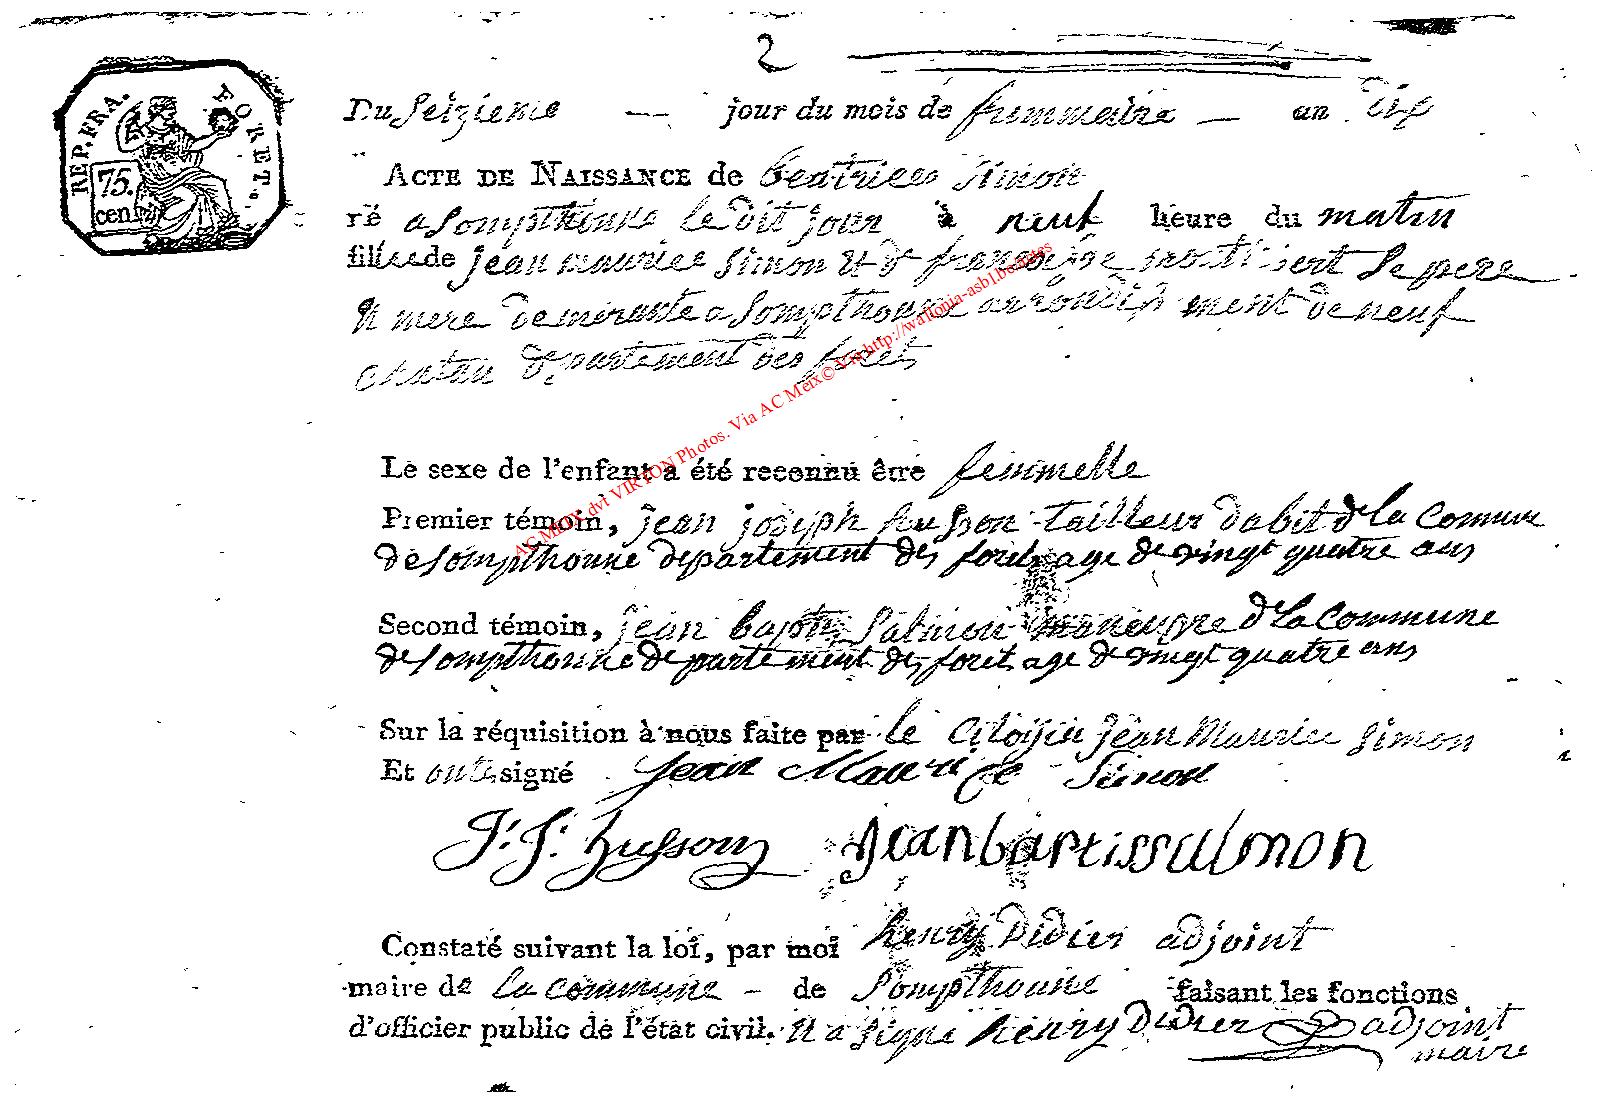 2
REP. FRA. FORET.
75.
cen.
Du Seizieme — jour du mois de frimmaire — an dix
ACTE DE NAISSANCE de beatrice Simon
né a Sompthonne le dit jour à neuf heure du matin
fille de jean maurice Simon et d françoise le pere
et mere demeurante a Sompthonne arrondis ment de neuf
chatau departement des forets
Le sexe de l'enfant a été reconnu être femmelle
Premier témoin, jean joseph husson tailleur dabit de la Comune
de Sompthonne departement des foret age de vingt quatre ans
Second témoin, jean bapte Salmon maneuvre de la Commune
de Sompthonne departement des foret age de vingt quatre ans
Sur la réquisition à nous faite par le Citoijen jean Maurice Simon
Et onts signé jean Maurice Simon
J. J. husson jeanbaptissalmon
Constaté suivant la loi, par moi henry Didier adjoint
maire de la commune — de Sompthonne faisant les fonctions
d'officier public de l'état civil. et a signé henry didier adjoint
maire
AC MEIX dvt VIRTON Photos. Via AC Meix© Via http://wallonia-asbl.be/actes